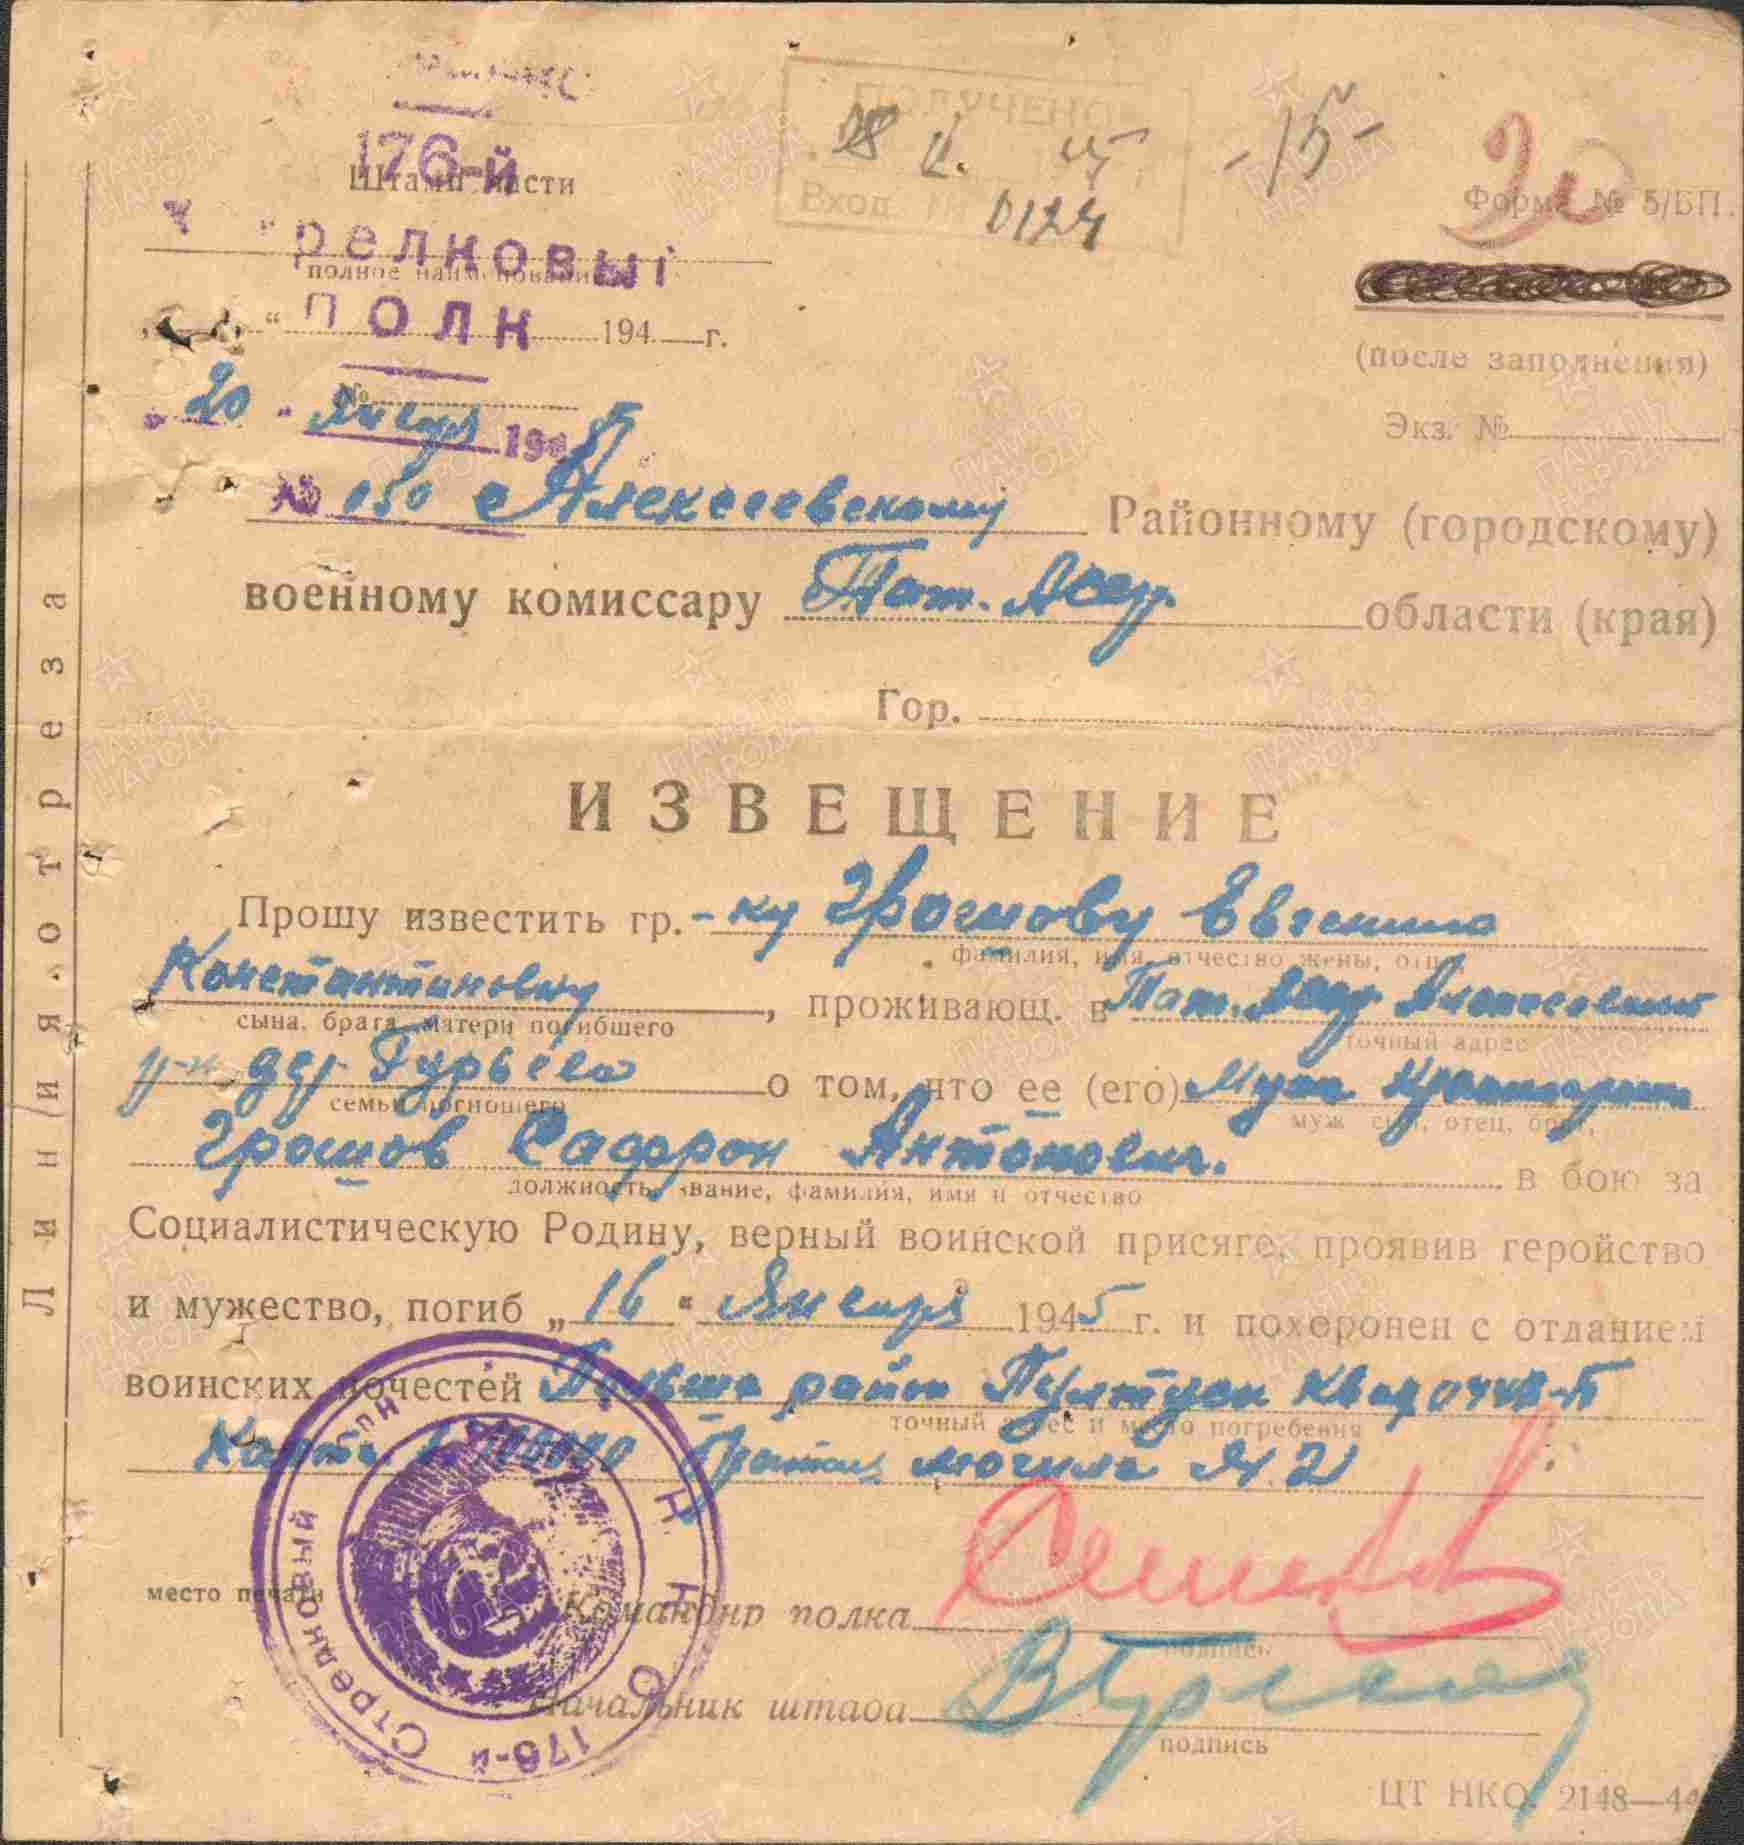 ПОЛУЧЕНО
Вход. № 0124
-15-
Форма № 5/БП.
176-й
Штамп части
полное наименование
полк
194 г.
(после заполнения)
Экз. №
"20" Января 1945
№ 050 Алексеевскому Районному (городскому)
военному комиссару Тат. Асср. области (края)
Гор.
ИЗВЕЩЕНИЕ
Прошу известить гр.-ку Грошову Евгению
фамилия, имя, отчество жены, отца,
Константиновну, проживающ. в Тат. Асср Алексеевский
сына, брата, матери погибшего
точный адрес
р-н дер. Гурьево о том, что ее (его) Муж Красноармеец
семьи погибшего
муж сын, отец, брат,
Грошов Сафрон Антонович. в бою за
должность, звание, фамилия, имя и отчество
Социалистическую Родину, верный воинской присяге, проявив геройство
и мужество, погиб „16" Января 1945 г. и похоронен с отданием
воинских почестей Польша район Пултуск
точный адрес и место погребения
Карта Братск. могила № 2
место печати
Командир полка
подпись
Начальник штаба
подпись
176-й Стрелковый полк
НКО
ЦТ НКО. 2148—44
Линия отреза